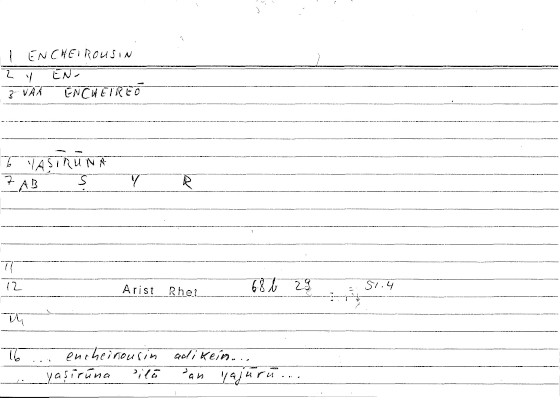 1 ENCHEIROUSIN
2 Y EN-
3 VAA ENCHEIREŌ
6 YAṢĪRŪNA
7 AB Ṣ Y R
11
12 Arist Rhet 68b 29 51.4
14
16 ... encheirousin adikein...
.. yaṣīrūna ʾilā ʾan yajūrū...